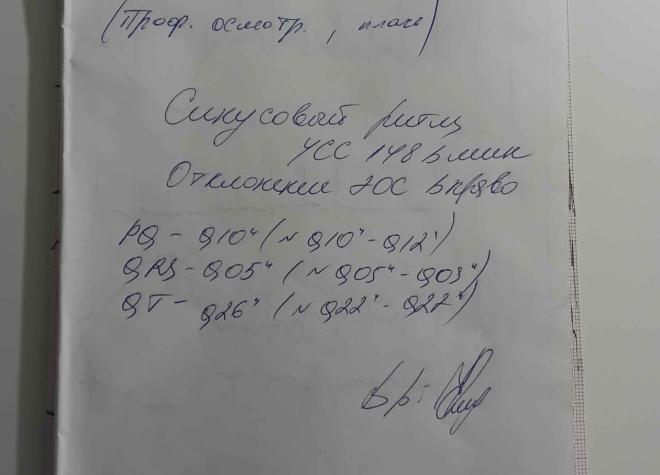 (Проф. осмотр., плач)
Синусовый ритм
ЧСС 148 в мин
Отклонение ЭОС вправо
PQ - 0,10" (N 0,10" - 0,12")
QRS - 0,05" (N 0,05" - 0,03")
QT - 0,26" (N 0,22" - 0,22")
Вр: